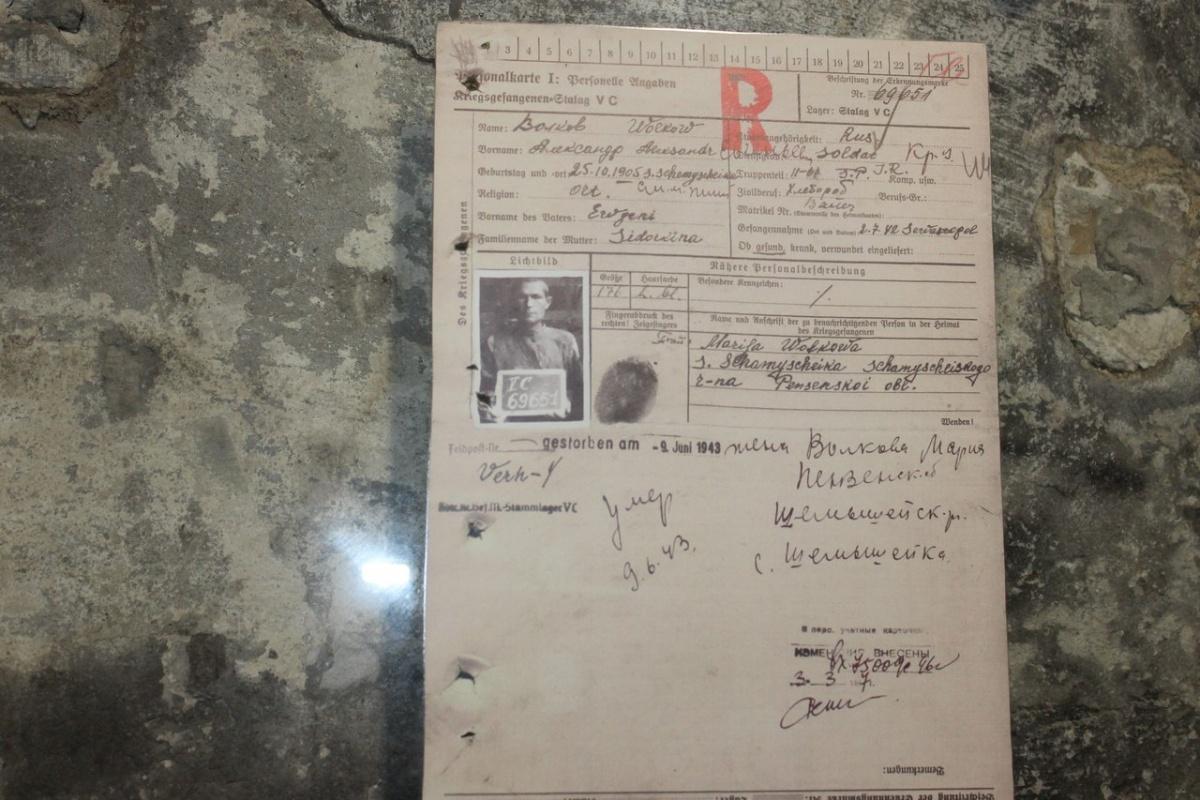 3 4 5 6 7 8 9 10 11 12 13 14 15 16 17 18 19 20 21 22 23 24 25
Personalkarte I: Personelle Angaben
Kriegsgefangenen-Stalag V C
R
Beschriftung der Erkennungsmarke
Nr. 69651
Lager: Stalag V C
Des Kriegsgefangenen
Name: Волков Wolkow
Vorname: Александр Aleksandr
Geburtstag und -ort 25.10.1905 s. Schamyscheika
Religion: ort.
Vorname des Vaters: Ewgeni
Familienname der Mutter: Sidorkina
Staatsangehörigkeit: Rus
Dienstgrad: Soldat Кр-ц
Truppenteil: Komp. usw.
Zivilberuf: Хлебороб Berufs-Gr.:
Bauer
Matrikel Nr. (Stammrolle des Heimatstaates)
Gefangennahme (Ort und Datum) 2.7.42 Sewastopol
Ob gesund, krank, verwundet eingeliefert:
Lichtbild
Nähere Personalbeschreibung
Größe Haarfarbe Besondere Kennzeichen:
Fingerabdruck des
rechten! Zeigefingers
Name und Anschrift der zu benachrichtigenden Person in der Heimat
des Kriegsgefangenen
Marija Wolkowa
s. Schamyscheika Schamyscheiskogo
r-na Pensenskoi obl.
Wenden!
69651
Feldpost-Nr.
gestorben am - 9. Juni 1943
жена Волкова Мария
Пензенской
Шемышейск. р.
с. Шемышейка
Stammlager V C
Умер
9.6.43.
В перс. учетные карточки
ИЗМЕНЕНИЯ ВНЕСЕНЫ
Bemerkungen:
Beschriftung der Erkennungsmarke Nr. Lager: